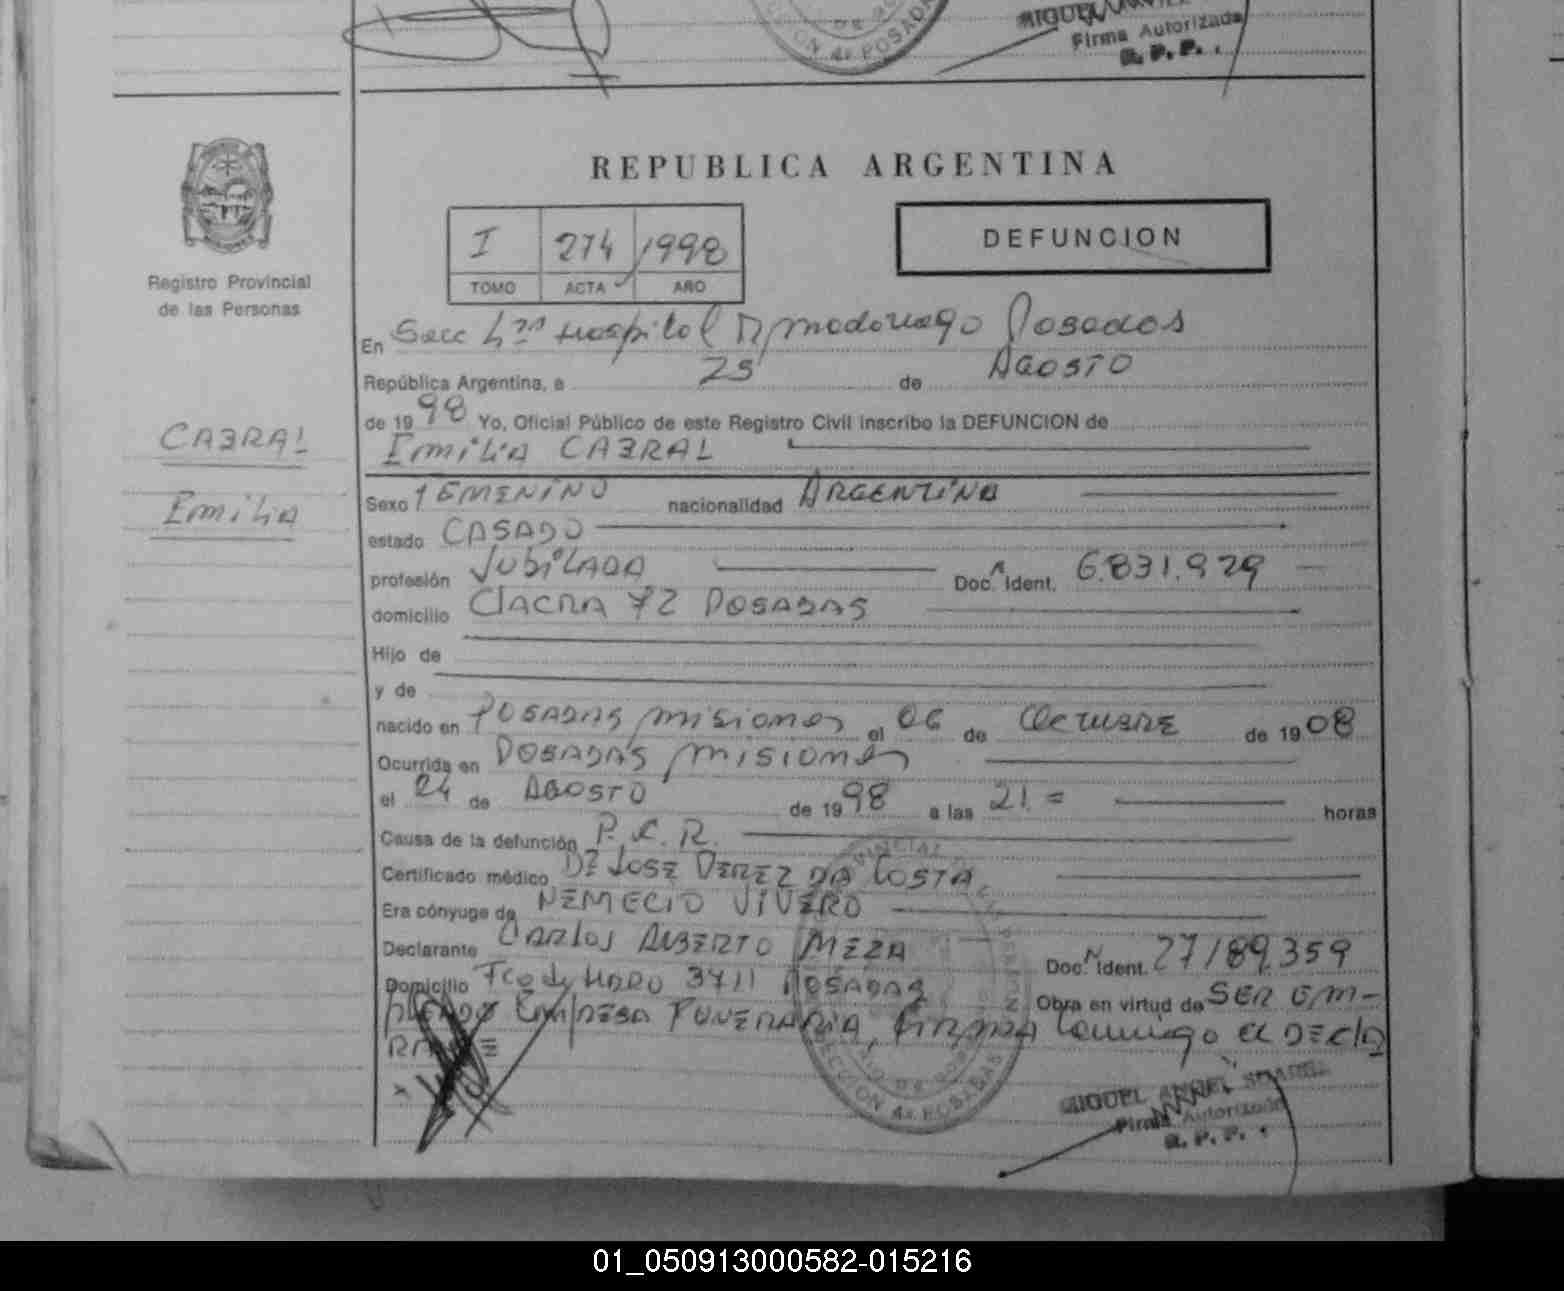 CION 4a POSADA
MIGUEL
Firma Autorizada
R. P. P.
REPUBLICA ARGENTINA
I 274 1998
TOMO ACTA AÑO
DEFUNCION
Registro Provincial
de las Personas
En Secc 4ta Hospital R, Madariaga Posadas
República Argentina, a 25 de AGOSTO
de 1998 Yo, Oficial Público de este Registro Civil inscribo la DEFUNCION de
Emilia CABRAL
CABRAL
Emilia
Sexo FEMENINO nacionalidad ARGENTINA
estado CASADO
profesión JUBILADA Doc. Ident. 6.831.929
domicilio CHACRA 72 POSADAS
Hijo de
y de
nacido en POSADAS, misiones el 06 de Octubre de 1908
Ocurrida en POSADAS, misiones
el 24 de AGOSTO de 1998 a las 21 = horas
Causa de la defunción P. C. R.
Certificado médico Dr JOSE PEREZ DA COSTA
Era cónyuge de NEMECIO VIVERO
Declarante CARLOS ALBERTO MEZA Doc. N Ident. 27189.359
Domicilio Fco de HARO 3711 POSADAS Obra en virtud de SER EM-
PLEADO EMPRESA FUNERARIA, FIRMA Conmigo el DECLA
RANTE
DIRECCION 4a POSADAS
MIGUEL ANGEL SUAREZ
Firma Autorizada
R. P. P.
01_050913000582-015216